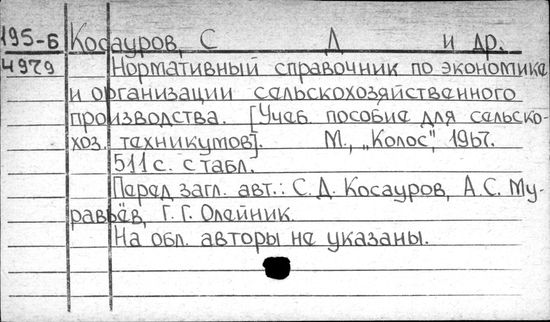 195-Б Косауров, С Д и др.
4979 Нормативный справочник по экономике
и организации сельскохозяйственного
производства. [Учеб. пособие для сельско-
хоз. техникумов]. М., „Колос", 1967.
511 с. с табл.
Перед загл. авт.: С.Д. Косауров, А.С. Му-
равьёв, Г.Г. Олейник.
На обл. авторы не указаны.